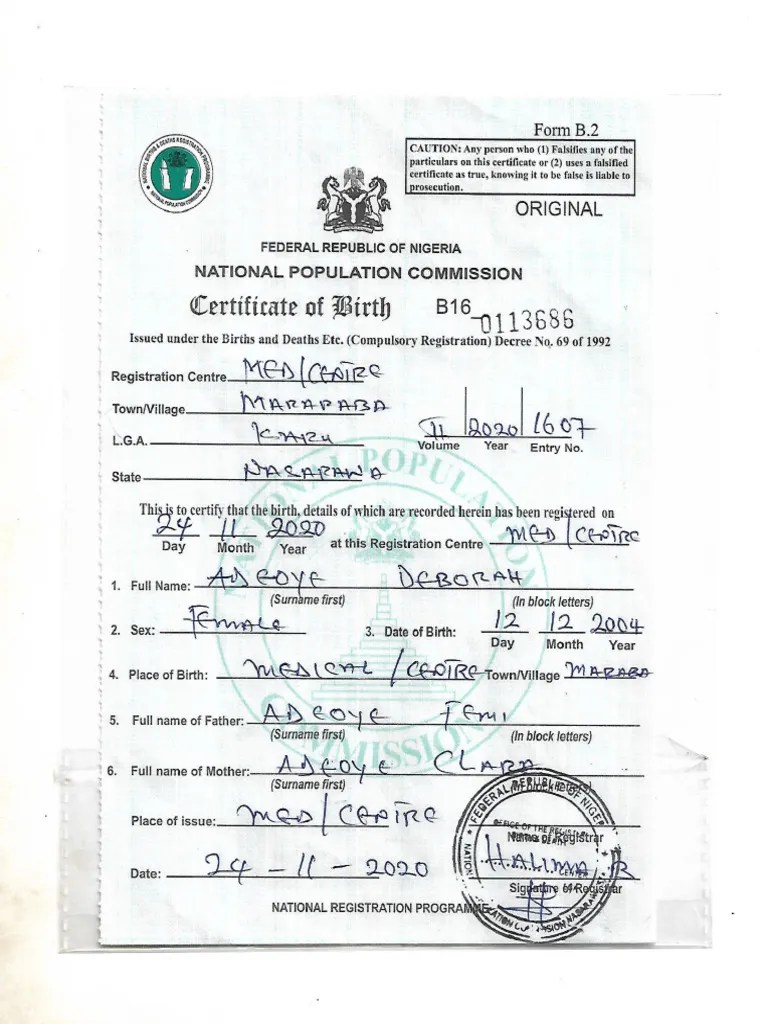 Form B.2
CAUTION: Any person who (1) Falsifies any of the
particulars on this certificate or (2) uses a falsified
certificate as true, knowing it to be false is liable to
prosecution.
ORIGINAL
NATIONAL POPULATION COMMISSION
FEDERAL REPUBLIC OF NIGERIA
NATIONAL POPULATION COMMISSION
Certificate of Birth B16 0113686
Issued under the Births and Deaths Etc. (Compulsory Registration) Decree No. 69 of 1992
Registration Centre MED/CENTRE
Town/Village MARARABA
L.G.A. KARU
II 2020 1607
Volume Year Entry No.
State NASARAWA
NATIONAL POPULATION
COMMISSION
This is to certify that the birth, details of which are recorded herein has been registered on
24 11 2020 at this Registration Centre MED/CENTRE
Day Month Year
1. Full Name: ADEOYE DEBORAH
(Surname first) (In block letters)
2. Sex: FEMALE 3. Date of Birth: 12 12 2004
Day Month Year
4. Place of Birth: MEDICAL/CENTRE Town/Village MARABA
5. Full name of Father: ADEOYE FEMI
(Surname first) (In block letters)
6. Full name of Mother: ADEOYE CLARA
(Surname first)
Place of issue: MED/CENTRE
Name of Registrar
HALIMA B
Date: 24-11-2020
Signature of Registrar
NATIONAL REGISTRATION PROGRAMME